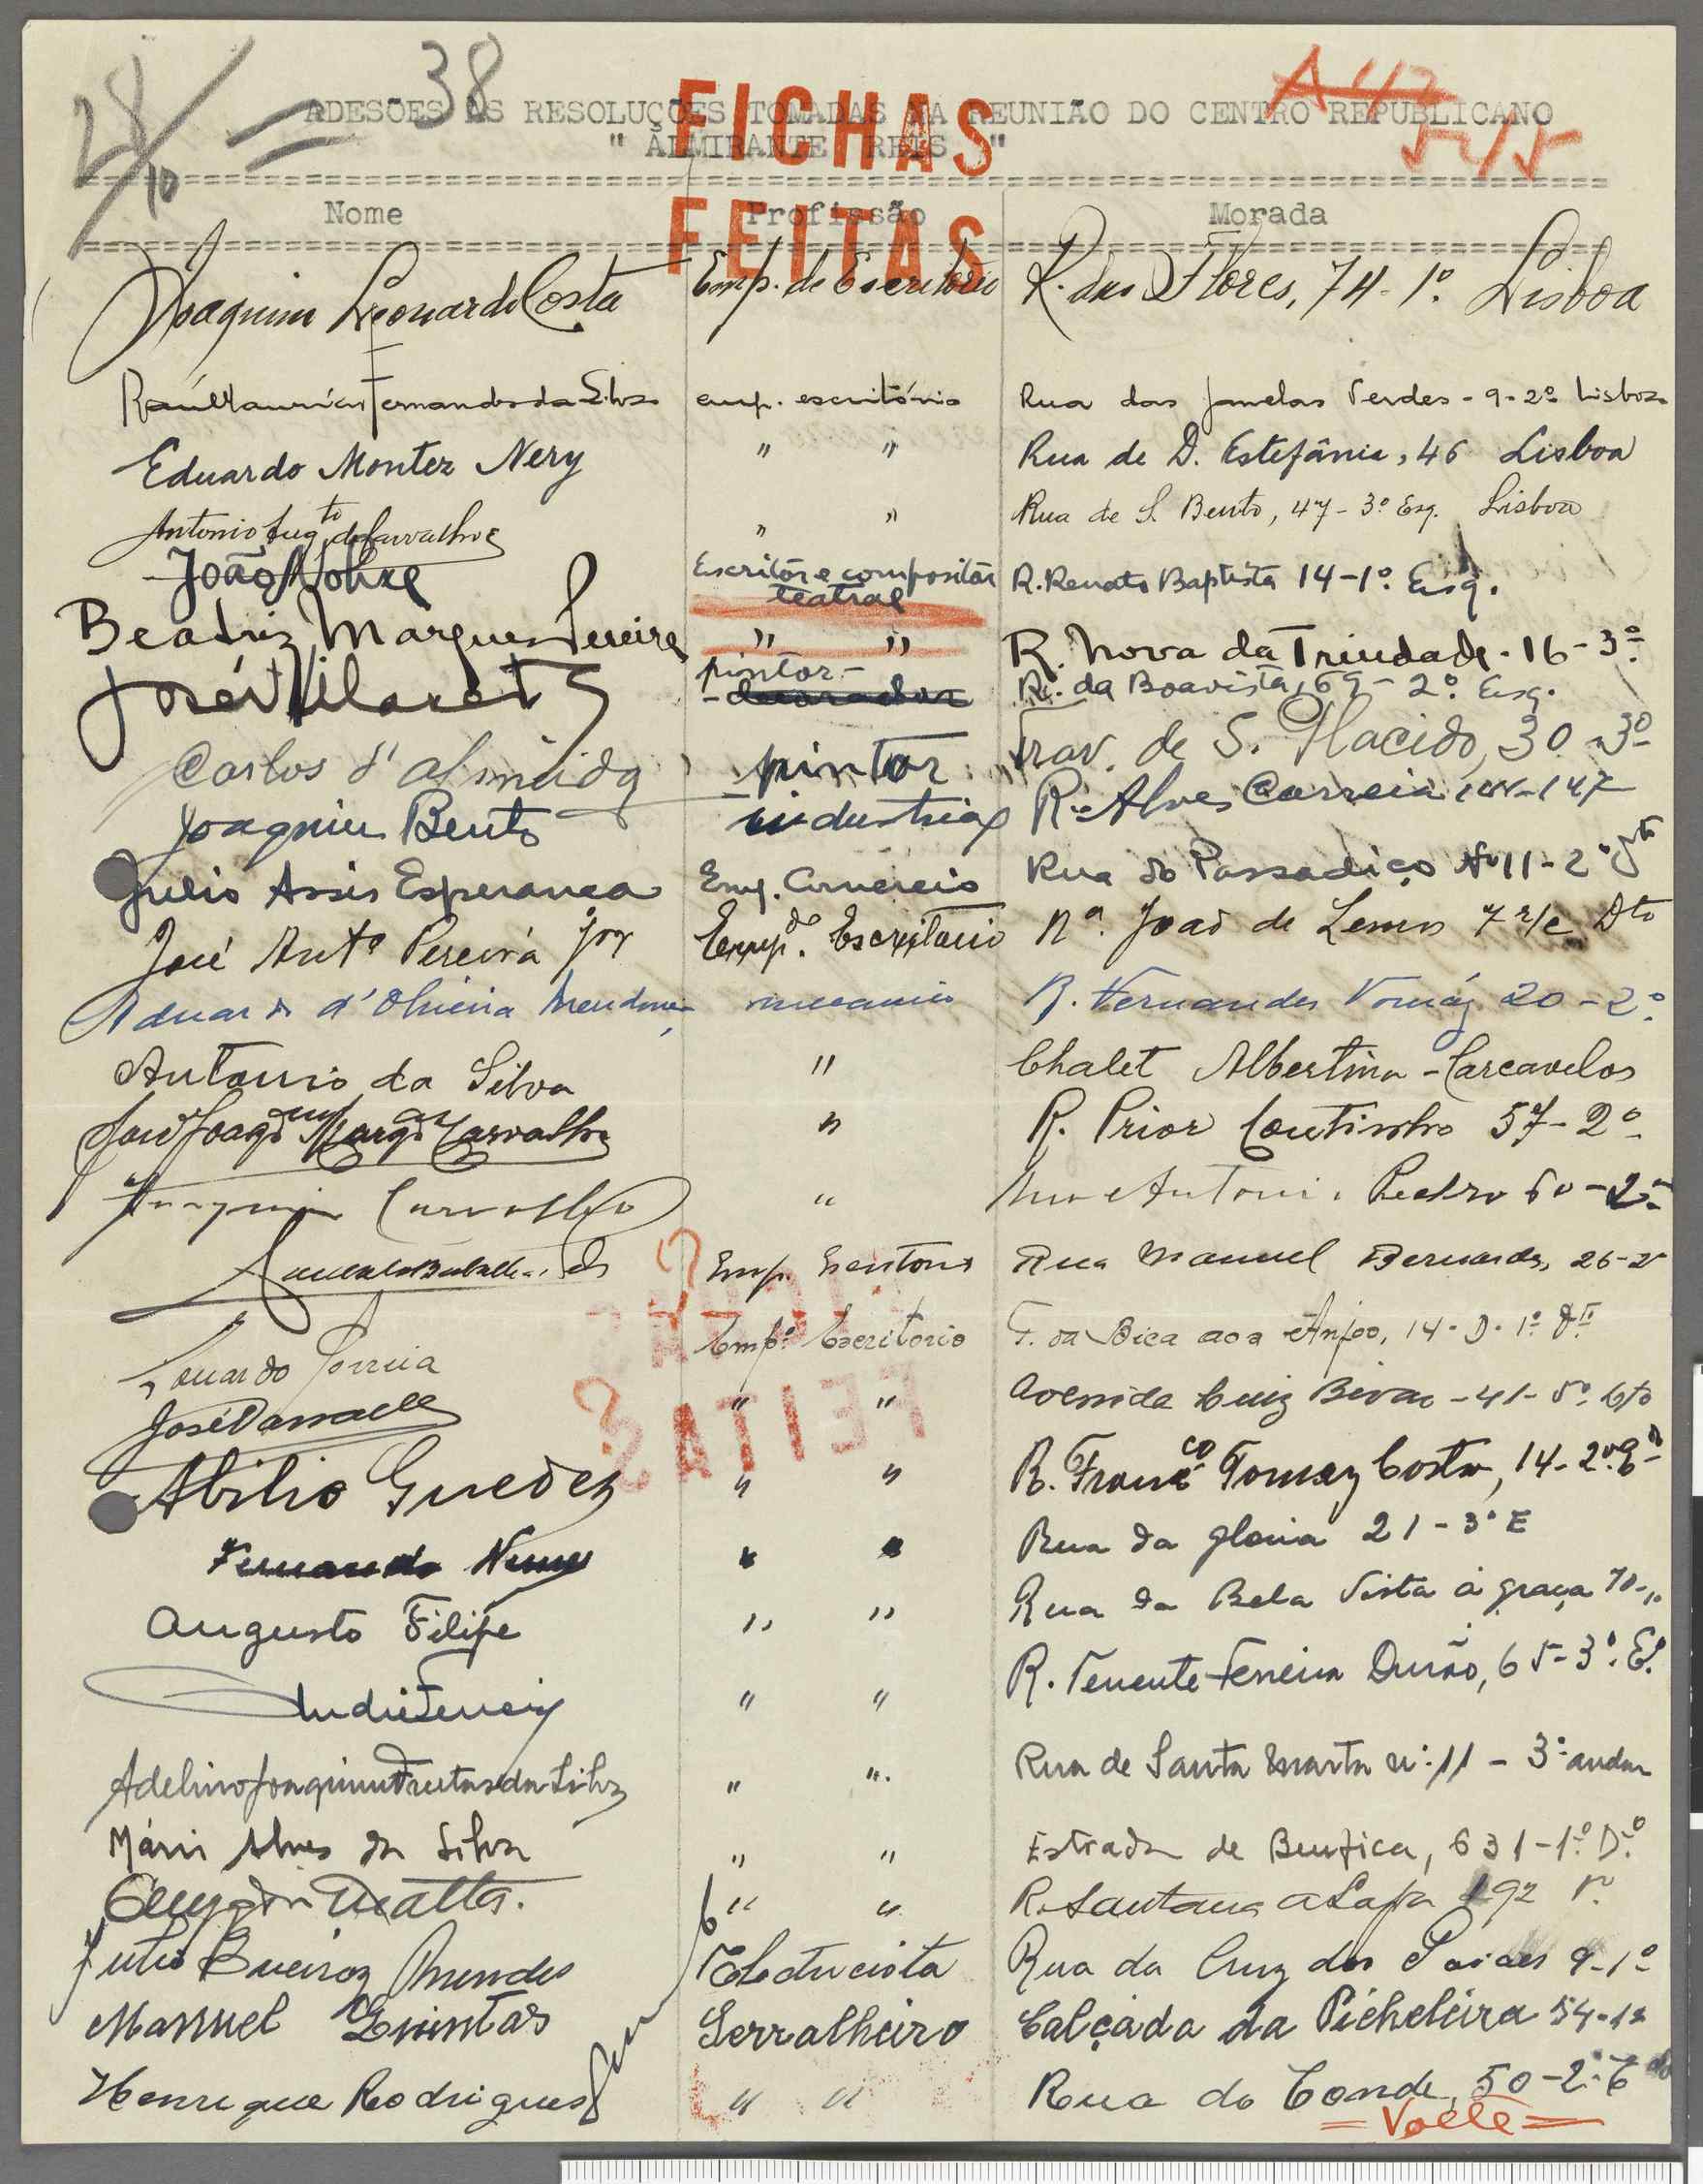 28/10 = 38
ADESÕES ÀS RESOLUÇÕES TOMADAS NA REUNIÃO DO CENTRO REPUBLICANO
" ALMIRANTE REIS "
FICHAS
FEITAS
Nome Profissão Morada
Joaquim Leonardo Costa Emp. de Escritório R. das Flores, 74-1º. Lisboa
Raúl Maurício Fernandes da Silva emp. escritório Rua das Janelas Verdes - 9-2º Lisboa
Eduardo Montez Nery " " Rua de D. Estefânia, 46 Lisboa
Antonio Augto de Carvalho " " Rua de S. Bento, 47-3º Esq. Lisboa
João Nobre Escritor e compositor teatral R. Renato Baptista 14-1º. Esq.
Beatriz Marques Pereira " " R. Nova da Trindade - 16-3º.
José Vilaret pintor - decorador R. da Boavista, 69-2º. Esq.
Carlos d'Almeida pintor Trav. de S. Placido, 30-3º
Joaquim Bento industrial R. Alves Correia 147
Julio Assis Esperança Emp. Comercio Rua do Passadiço Nº 11-2º Dto
José Antº Pereira Jor Emp.do Escritorio João de Lemos 7 r/c Dto
Eduardo d'Oliveira Mendonça mecanico R. Fernandes Tomáz 20-2º
Antonio da Silva " Chalet Albertina - Carcavelos
José Joaqim Carvalho " R. Prior Coutinho 57-2º
Joaquim Carvalho " Antonio Pedro 60-2º
Emp. Escritorio Rua Manuel Bernardes, 26-2º
Eduardo Correia Empº. Escritorio T. da Bica aos Anjos, 14-D-1º. Dto
José " " Avenida Luiz Bivar - 41-5º. Dto
Abilio Guedes " " R. Franco Tomaz Costa, 14-2º.
Fernando Nunes " " Rua da Gloria 21-3º E
Augusto Filipe " " Rua da Bela Vista à Graça 70-1º
André Ferreira " " R. Tenente Ferreira Durão, 65-3º. Eº.
Adelino Joaquim Freitas da Silva " " Rua de Santa Marta nº. 11 - 3º. andar
Mário Alves da Silva " " Estrada de Benfica, 631-1º. Dº.
Mattos. " " R. Santana a Lapa 192
Julio Queiroz Mendes Electricista Rua da Cruz dos Poiaes 9-1º
Manuel Quintas Serralheiro Calçada da Picheleira 54-1º
Henrique Rodrigues " " Rua do Conde, 50-2º. E
= Volte =